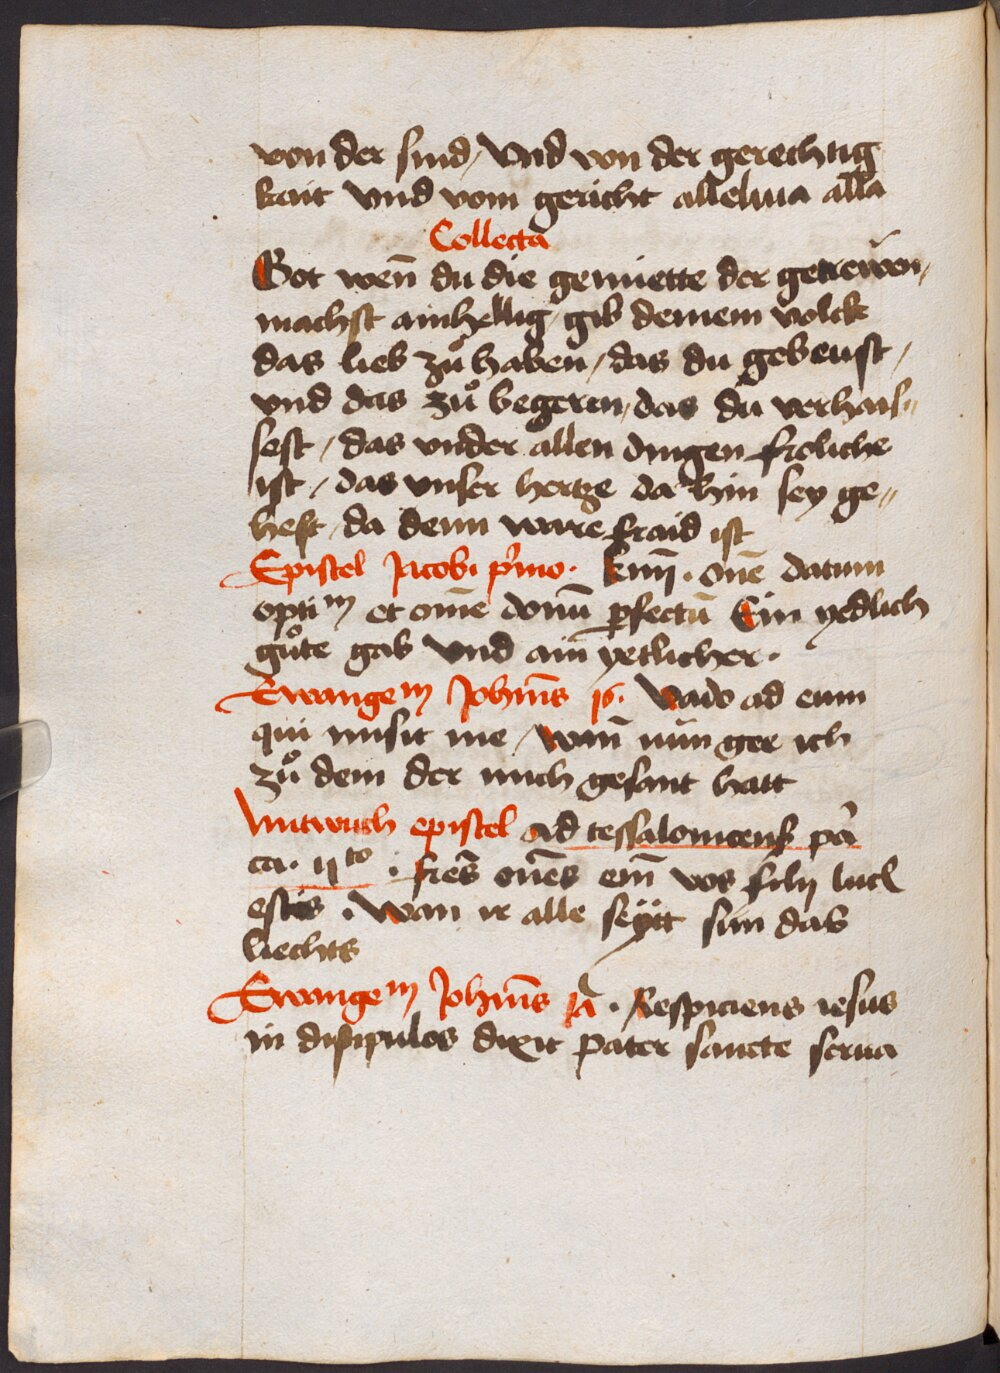 von der sind / vnd von der gerechtig
kait vnd vom gericht alleluia all̄a
Collecta
Got wen̄ du die gemiette der getrewen /
machst ainhellig / gib deinem volck
das lieb zů haben / das du gebeust /
vnd das zů begeren / das du verhais⸗
sest / das vnder allen dingen froliche
ist / das vnser hertze da hin sey ge⸗
heft / da denn ware fraid ist
Epistel Jacobi p̄mo · om̄e datum
opti᷑m et om̄e donū ꝑfectū Ein yedlich
gůte gab vnd ain yetlicher ·
Ewangeᵐ Joh̄nis Vado ad eum
qui misit me / wan̄ nun ger ich
zů dem der mich gesant hatt
Mitwuch epistel ad tessalonicens̄ pā
ca · ijto · fr̄es om̄es em̄ vos filij luc̄
estis · Wan ir alle seÿtt sun das
liechts
Ewangeᵐ Joh̄nis · Respiciens iesus
in discipulos dixit pater sancte serua